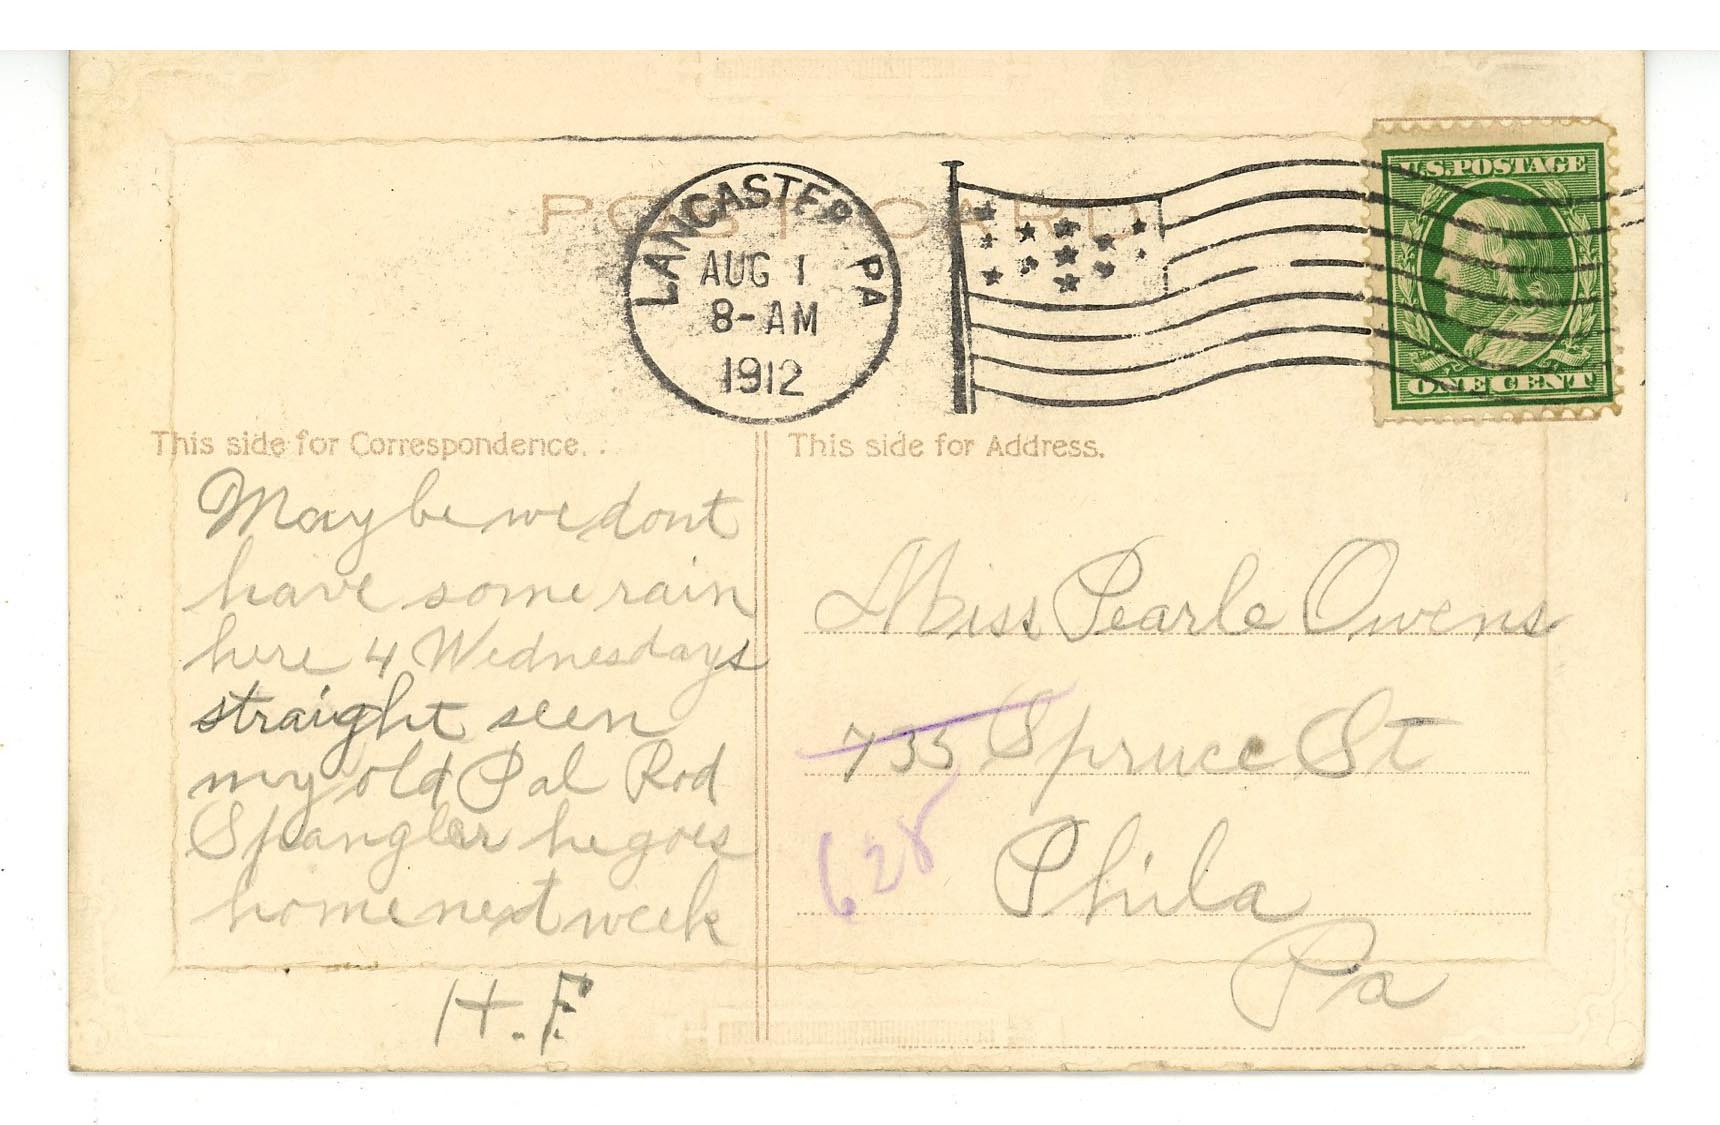 POST CARD
LANCASTER PA
AUG 1
8-AM
1912
U.S.POSTAGE
ONE CENT
This side for Correspondence.
May be we dont
have some rain
here 4 Wednesdays
straight seen
my old Pal Rod
Spangler he goes
home next week
H.F.
This side for Address.
Miss Pearle Owens
735 Spruce St
628
Phila
Pa